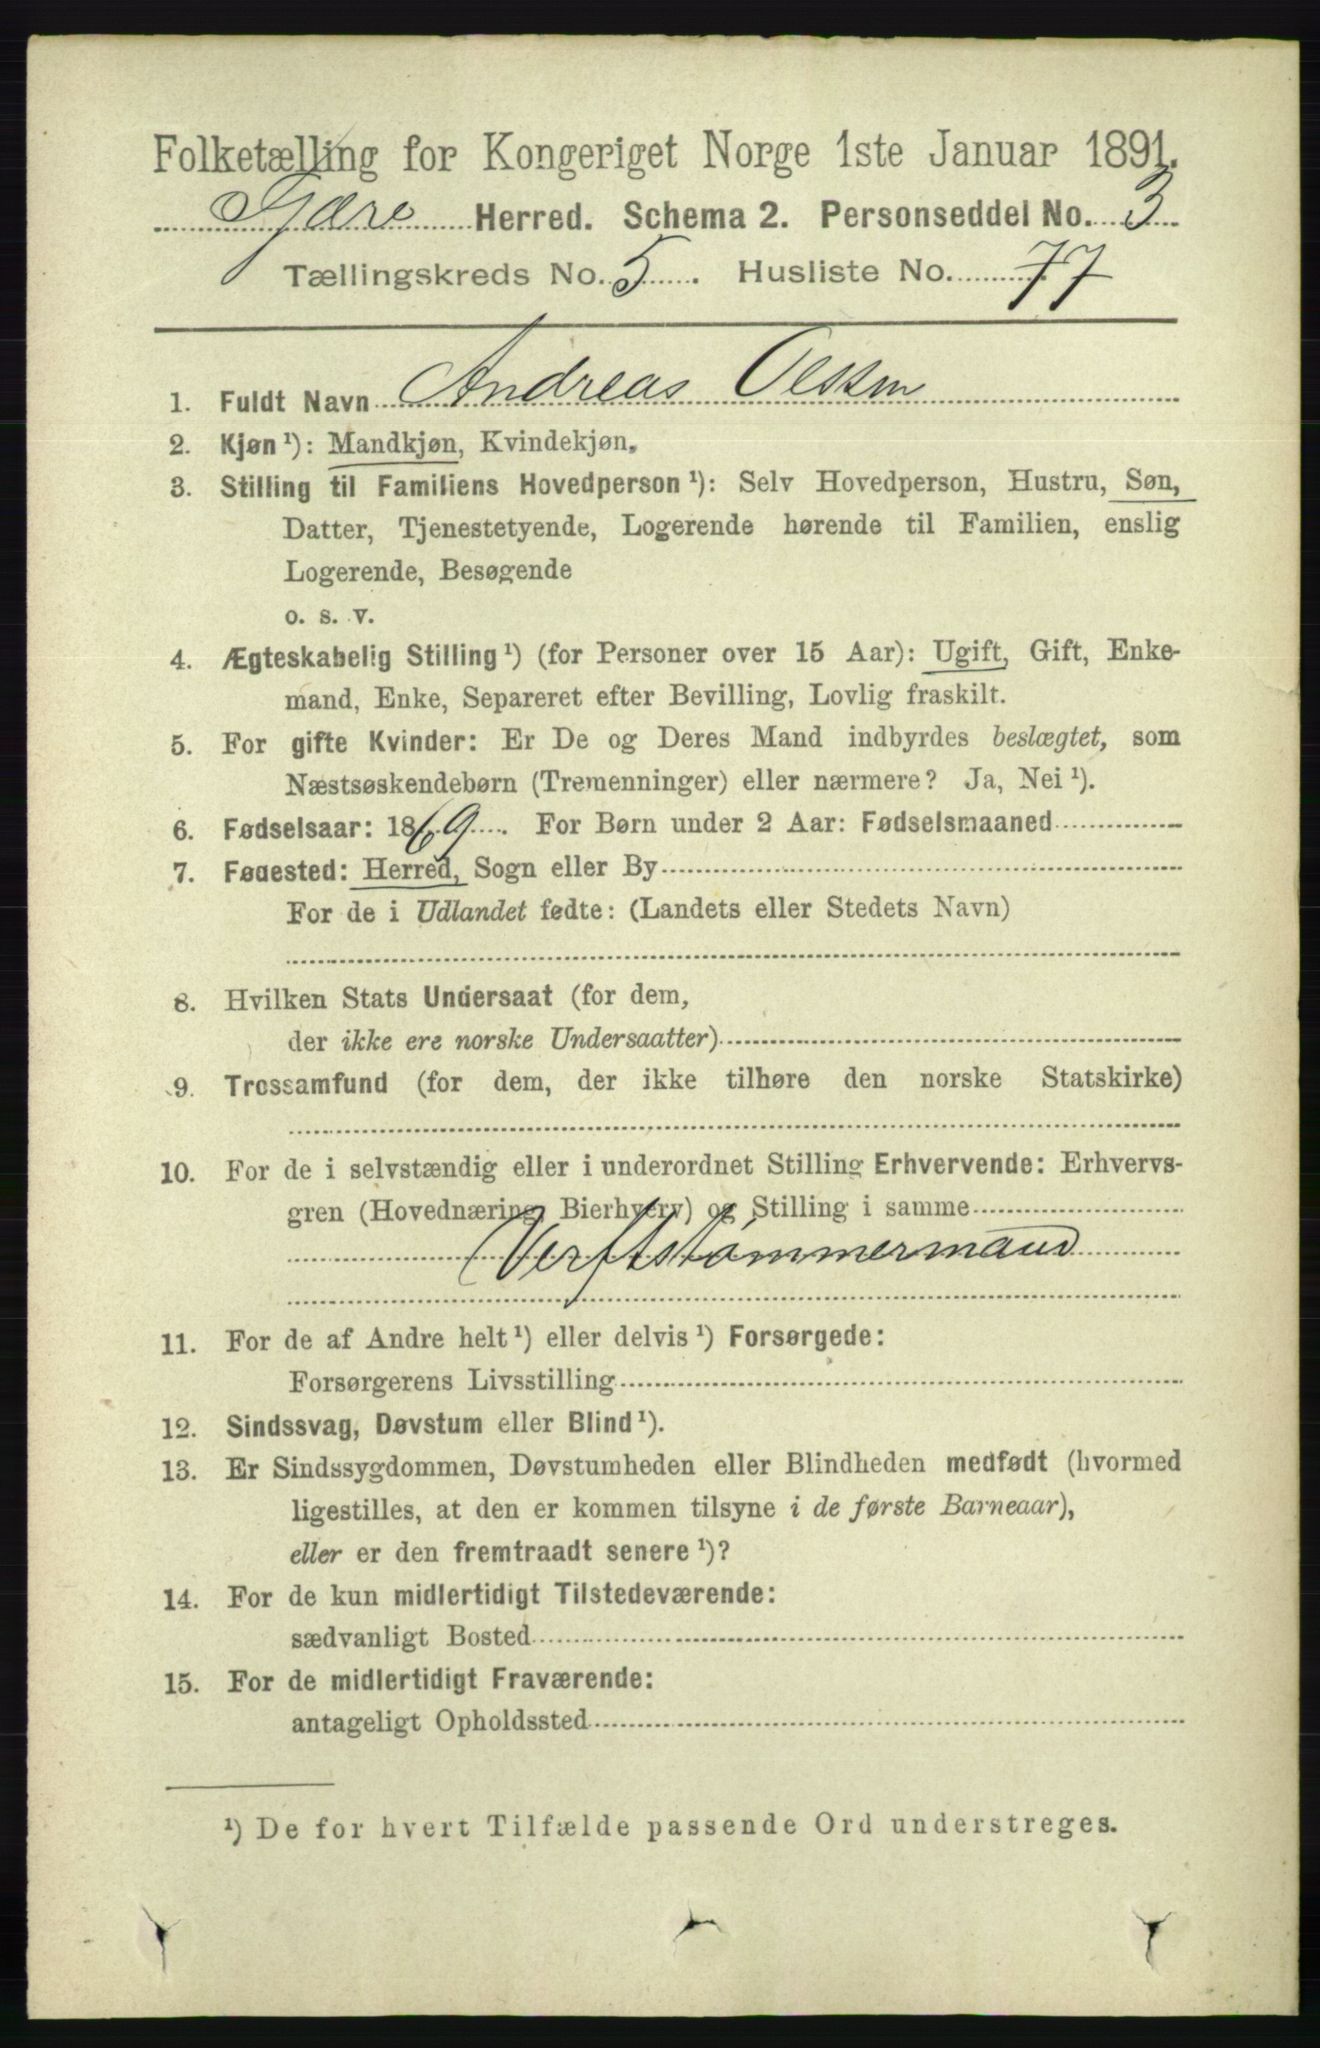 Folketælling for Kongeriget Norge 1ste Januar 1891.
Herred. Schema 2. Personseddel No. 3
Tællingskreds No. 5. Husliste No. 77
1. Fuldt Navn Andreas Olssen
2. Kjøn¹): Mandkjøn, Kvindekjøn.
3. Stilling til Familiens Hovedperson¹): Selv Hovedperson, Hustru, Søn,
Datter, Tjenestetyende, Logerende hørende til Familien, enslig
Logerende, Besøgende
o. s. v.
4. Ægteskabelig Stilling¹) (for Personer over 15 Aar): Ugift, Gift, Enke-
mand, Enke, Separeret efter Bevilling, Lovlig fraskilt.
5. For gifte Kvinder: Er De og Deres Mand indbyrdes beslægtet, som
Næstsøskendebørn (Tremenninger) eller nærmere? Ja, Nei¹).
6. Fødselsaar: 1869. For Børn under 2 Aar: Fødselsmaaned
7. Fødested: Herred, Sogn eller By
For de i Udlandet fødte: (Landets eller Stedets Navn)
8. Hvilken Stats Undersaat (for dem,
der ikke ere norske Undersaatter)
9. Trossamfund (for dem, der ikke tilhøre den norske Statskirke)
10. For de i selvstændig eller i underordnet Stilling Erhvervende: Erhvervs-
gren (Hovednæring, Bierhverv) og Stilling i samme
Verftstømmermand
11. For de af Andre helt¹) eller delvis¹) Forsørgede:
Forsørgerens Livsstilling
12. Sindssvag, Døvstum eller Blind¹).
13. Er Sindssygdommen, Døvstumheden eller Blindheden medfødt (hvormed
ligestilles, at den er kommen tilsyne i de første Barneaar),
eller er den fremtraadt senere¹)?
14. For de kun midlertidigt Tilstedeværende:
sædvanligt Bosted
15. For de midlertidigt Fraværende:
antageligt Opholdssted
¹) De for hvert Tilfælde passende Ord understreges.